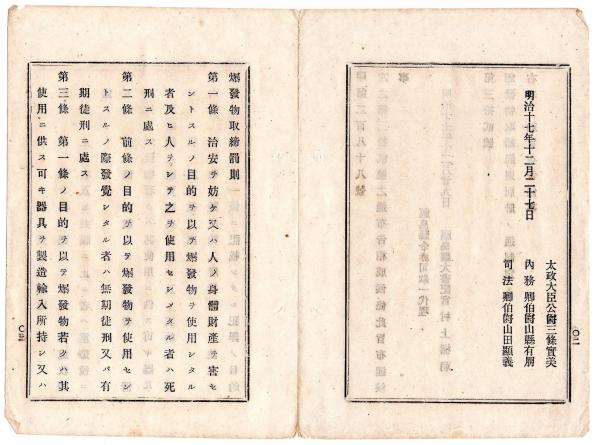 明治十七年十二月二十七日
太政大臣公爵三條實美
內務卿伯爵山縣有朋
司法卿伯爵山田顯義
〇二
爆發物取締罰則
第一條 治安ヲ妨ケ又ハ人ノ身體財產ヲ害セ
ントスルノ目的ヲ以テ爆發物ヲ使用シタル
者及ヒ人ヲシテ之ヲ使用セシメタル者ハ死
刑ニ處ス
第二條 前條ノ目的ヲ以テ爆發物ヲ使用セン
トスルノ際發覺シタル者ハ無期徒刑又ハ有
期徒刑ニ處ス
第三條 第一條ノ目的ヲ以テ爆發物若クハ其
使用ニ供ス可キ器具ヲ製造輸入所持シ又ハ
〇三